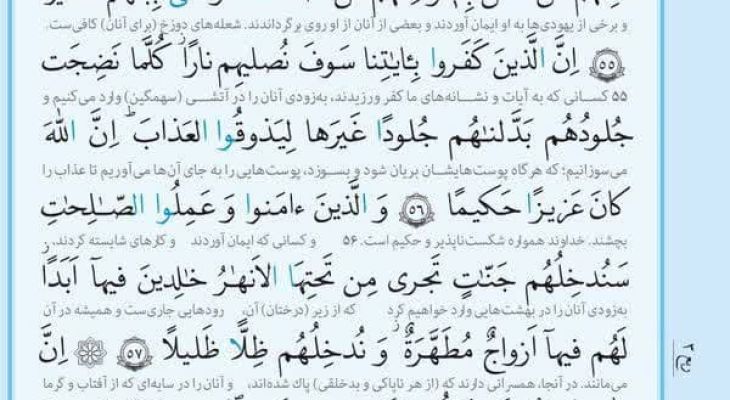 و برخی از یهودی‌ها به او ایمان آوردند و بعضی از آنان از او روی برگرداندند. شعله‌های دوزخ (برای آنان) کافی‌ست.
۵۵ اِنَّ الَّذینَ کَفَروا بِئایٰتِنا سَوفَ نُصلیهِم نارًا کُلَّما نَضِجَت
۵۵ کسانی که به آیات و نشانه‌های ما کفر ورزیدند، به‌زودی آنان را در آتشی (سهمگین) وارد می‌کنیم و
جُلودُهُم بَدَّلنٰهُم جُلودًا غَیرَها لِیَذوقُوا العَذابَ اِنَّ اللّٰهَ
می‌سوزانیم؛ که هرگاه پوست‌هایشان بریان شود و بسوزد، پوست‌هایی را به جای آن‌ها می‌آوریم تا عذاب را
کانَ عَزیزًا حَکیمًا ۵۶ وَ الَّذینَ ءامَنوا وَ عَمِلُوا الصّٰلِحٰتِ
بچشند. خداوند همواره شکست‌ناپذیر و حکیم است. ۵۶ و کسانی که ایمان آوردند و کارهای شایسته کردند،
سَنُدخِلُهُم جَنّٰتٍ تَجری مِن تَحتِهَا الاَنهٰرُ خٰلِدینَ فیهآ اَبَدًا
به‌زودی آنان را در بهشت‌هایی وارد خواهیم کرد که از زیر (درختان) آن، رودهایی جاری‌ست و همیشه در آن
لَهُم فیهآ اَزواجٌ مُطَهَّرَةٌ وَ نُدخِلُهُم ظِلًّا ظَلیلًا ۵۷ اِنَّ
می‌مانند. در آنجا، همسرانی دارند که (از هر ناپاکی و بدخلقی) پاک شده‌اند، و آنان را در سایه‌ای که از آفتاب و گرما
ربع ۲